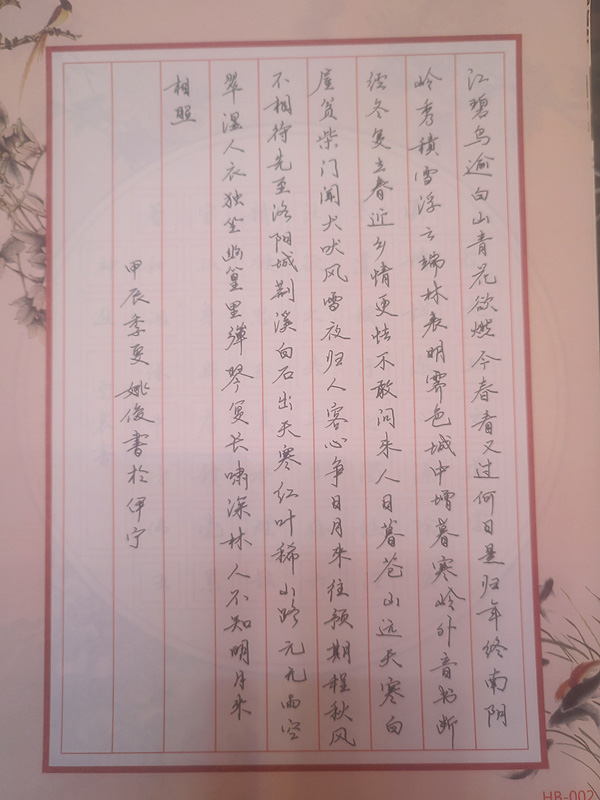 江碧鸟逾白山青花欲燃今春看又过何日是归年终南阴
岭秀积雪浮云端林表明霁色城中增暮寒岭外音书断
经冬复立春近乡情更怯不敢问来人日暮苍山远天寒白
屋贫柴门闻犬吠风雪夜归人客心争日月来往预期程秋风
不相待先至洛阳城荆溪白石出天寒红叶稀山路元无雨空
翠湿人衣独坐幽篁里彈琴复长啸深林人不知明月来
相照
甲辰季夏姚俊書於伊宁
HB-002